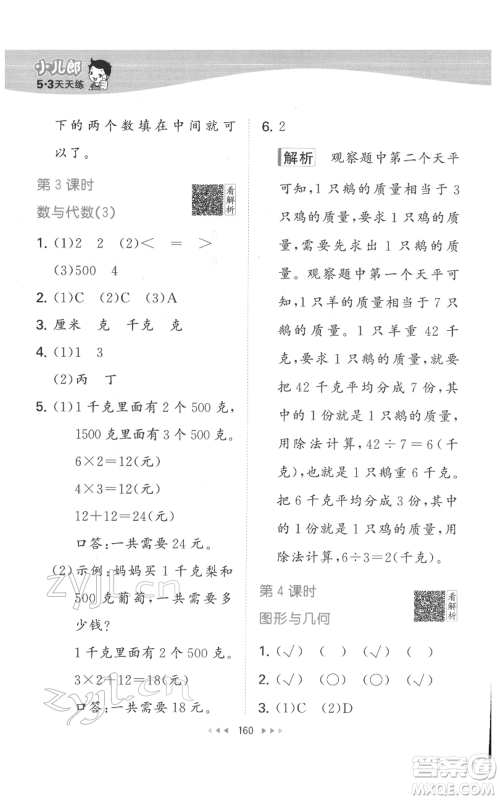 小儿郎
5·3天天练
下的两个数填在中间就可
以了。
第3课时
数与代数(3)
看解析
1. (1)2 2 (2)< = >
(3)500 4
2. (1)C (2)C (3)A
3. 厘米 克 千克 克
4. (1)1 3
(2)丙 丁
5. (1)1千克里面有2个500克,
1500克里面有3个500克。
6×2=12(元)
4×3=12(元)
12+12=24(元)
口答:一共需要24元。
(2)示例:妈妈买1千克梨和
500克葡萄,一共需要多
少钱?
1千克里面有2个500克。
3×2+12=18(元)
口答:一共需要18元。
6. 2
解析 观察题中第二个天平
可知,1只鹅的质量相当于3
只鸡的质量,要求1只鸡的质
量,需要先求出1只鹅的质
量。观察题中第一个天平可
知,1只羊的质量相当于7只
鹅的质量。1只羊重42千
克,要求1只鹅的质量,就要
把42千克平均分成7份,其
中的1份就是1只鹅的质量,
用除法计算,42÷7=6(千
克),也就是1只鹅重6千克。
把6千克平均分成3份,其中
的1份就是1只鸡的质量,用
除法计算,6÷3=2(千克)。
第4课时
图形与几何
看解析
1. (√) ( ) (√) (√)
2. (√) (○) (○) (√)
3. (1)C (2)D
160
zyjl.cn
zyjl.cn
答案圈
MXQE.COM